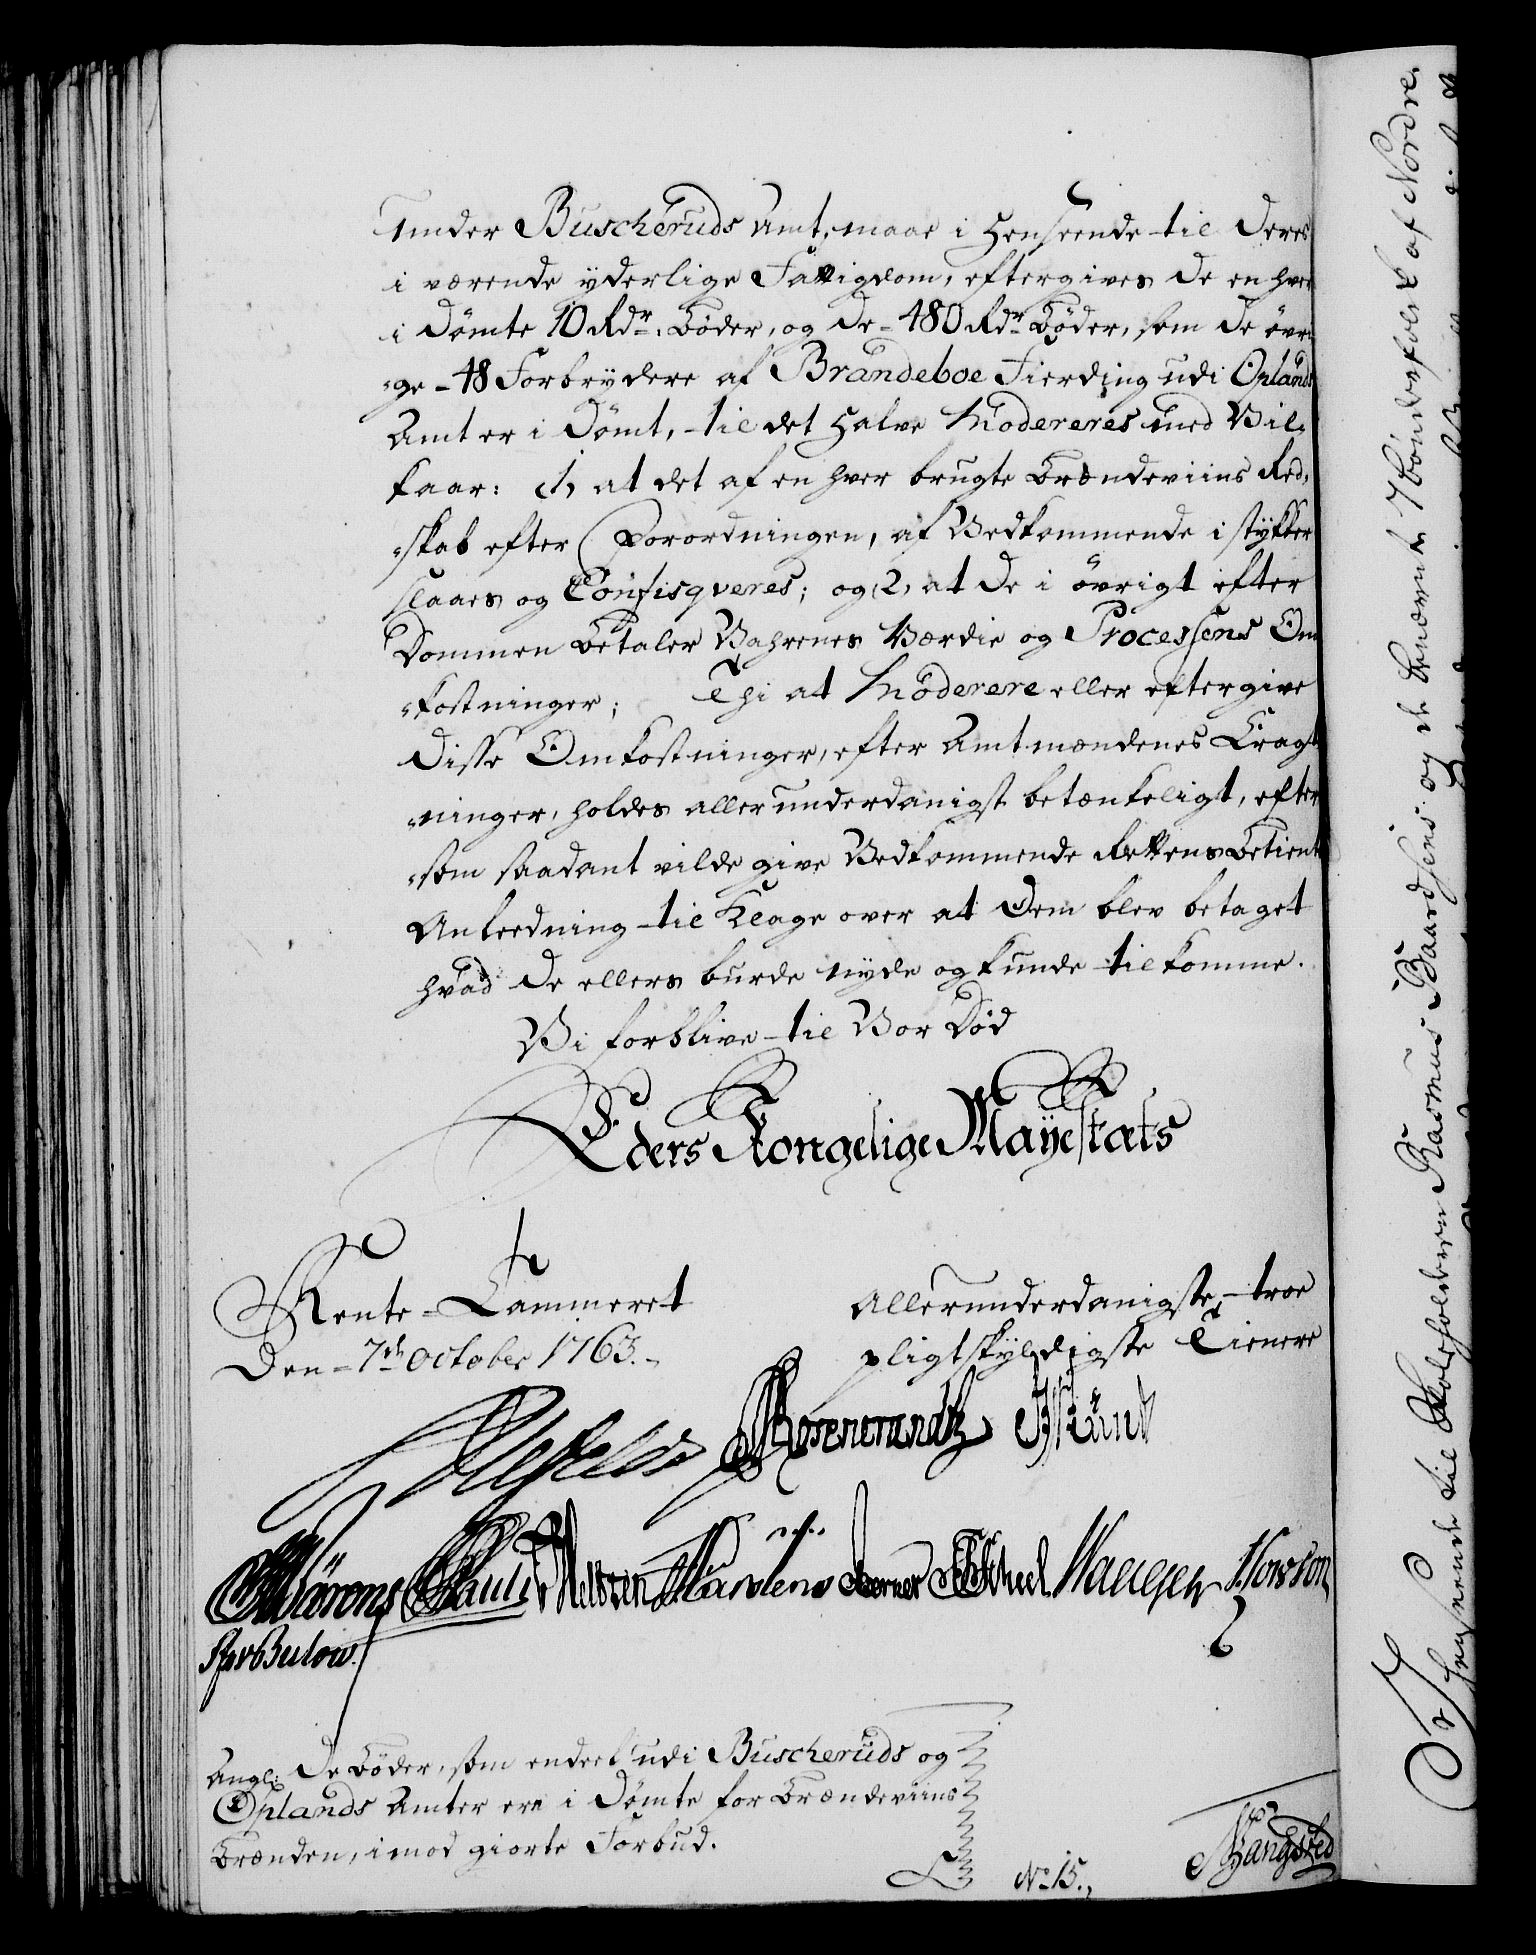 under Buscheruds Amt, maae i Henseende til deres
i værende yderlige Fattigdom, eftergives de en hver
i dømte 10 Rdr. Bøder, og de 480 Rdr. Bøder, som de övri
-ge 48 Forbrydere af Brandeboe Fierding udi Oplands
Amt er i dømt, til det halve Modereres med Vil-
kaar: 1, at det af en hver brugte Brændeviins Red-
-skab efter Forordningen, af Vedkommende i stykker
slaaes og Confisqveres; og 2, at de i övrigt efter
Dommen betaler Vahrenes Værdie og Processens Om
-kostninger; Thi at Moderere eller eftergive
disse Omkostninger, efter Amtmændenes Eragt
-ninger, holdes allerunderdanigst betænkeligt, efter
-som saadant vilde give Vedkommende Rettens Betiente
Anledning til Klage over at Dem blev betaget
hvad de ellers burde nyde og kunde tilkomme.
Vi forblive til Vor Død
Eders Kongelige Mayestæts
Rente-Cammeret
Den 7de October 1763.
Allerunderdanigste, troe
pligtskyldigste Tienere
Rosencrandtz
Pauli Meltzen Martens Scheel
Bulow.
Angl: de Bøder, som endeel udi Buscheruds og
Oplands Amter ere i dømte for Brændeviins
Brænden, imod giorte Forbud.
No. 15.
Bangsted
I Henseende til Skoleholderen Rasmus Baardsens og de benævnte 7 Bøndefolk af Nordre